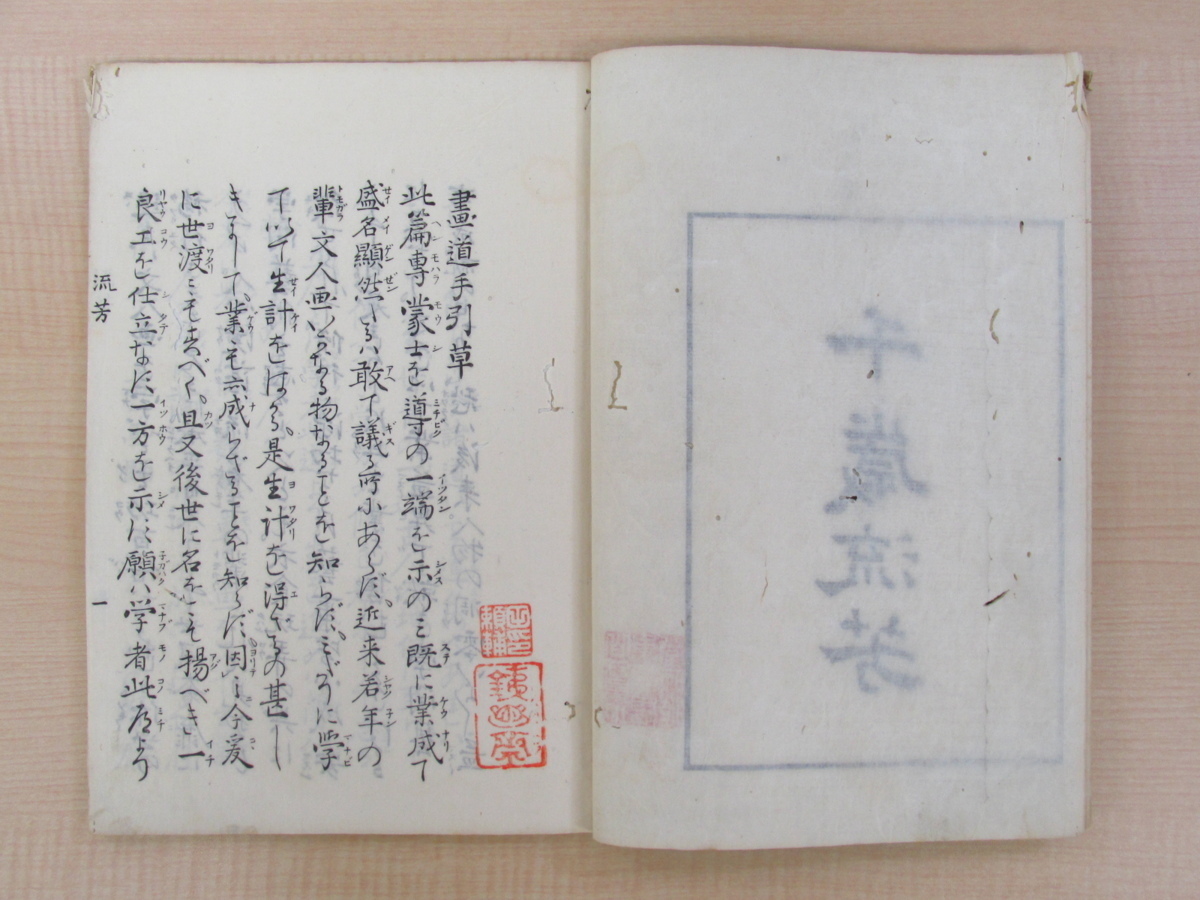 千歳流芳
畫道手引草
此篇専蒙士を導の一端を示のミ既に業成て
盛名顯然たるハ敢て議る所にあらず近来若年の
輩文人画いかなる物なることを知らずミだりに学
て以て生計をはかる是生計を得ざるの甚し
きにして業も亦成らざることを知らず因ミに今爰
に世渡ミも出来べく且又後世に名をも揚べき一
良工を仕立なす一方を示す願ハ学者此道より
流芳
一